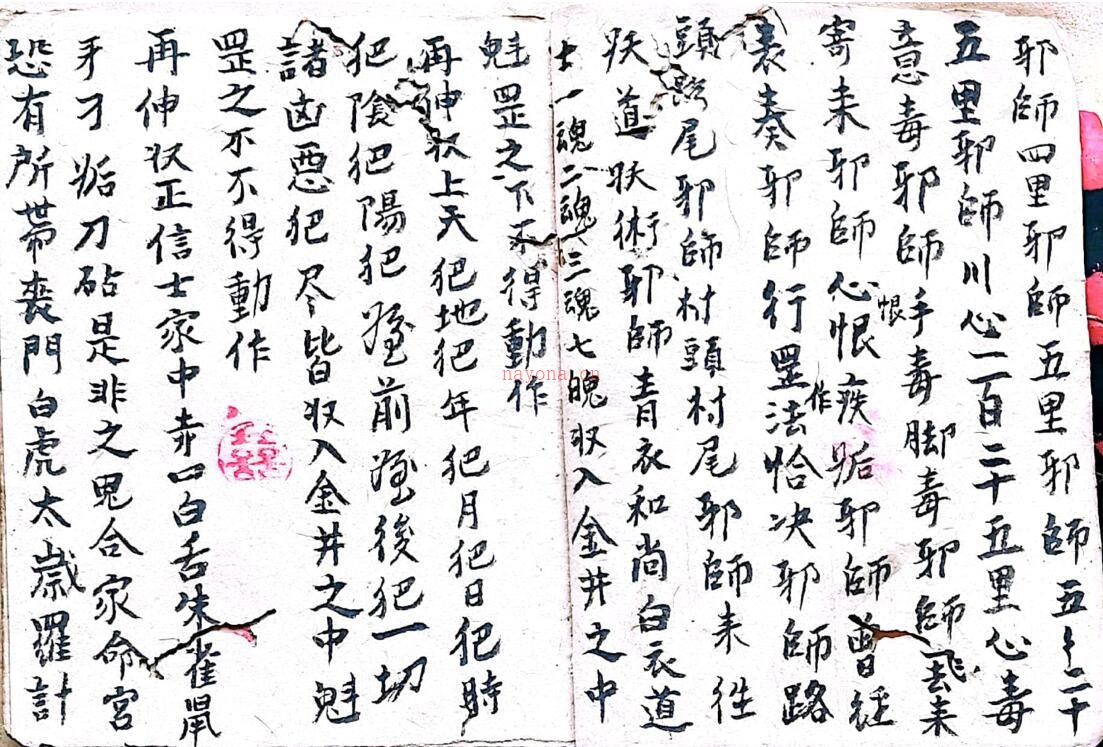 邪師四里邪師五里邪師五〻二十
五里邪師川心一百二十五里心毒
意毒邪師手毒脚毒邪師飞去来
恨
寄来邪師心恨疾妬邪師曽経
作
表奏邪師行罡法恰决邪師路
頭路尾邪師村頭村尾邪師来往
妖道妖術邪師青衣和尚白衣道
士一魂二魂三魂七魄収入金井之中
魁罡之下不得動作
再伸状上天犯地犯年犯月犯日犯時
犯陰犯陽犯前後犯一切
諸凶悪犯尽皆収入金井之中魁
罡之不不得動作
再伸状正信士家中赤口白舌朱雀
刀砧是非之鬼合家命宮
恐有所带喪門白虎太歳羅計
nayona.cn